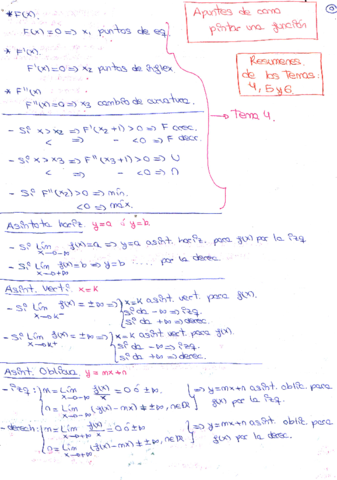 * F(x).
F(x)=0 => x, puntos de eq.
* F'(x).
F'(x)=0 => x2 puntos de inflex
* F''(x)
F''(x)=0 => x3 cambio de curvatura.
Apuntes de como
pintar una función
Resumenes
de los Temas:
4, 5 y 6.
→ Tema 4.
- Si x > x2 => F'(x2+1) > 0 => F crec.
< - < 0 => F decr.
- Si x > x3 => F''(x3+1) > 0 => U
< - < 0 => ∩
- Si F''(x2) > 0 => mín.
< 0 => máx.
Asíntota horiz. y=a ó y=b.
- Si Lím x→-∞ f(x)=a => y=a asínt. horiz. para f(x) por la izq.
- Si Lím x→+∞ f(x)=b => y=b ..... por la derec.
Asínt. Verti. x=k
- Si Lím x→k⁻ f(x)=±∞ => x=k asínt. vert. para f(x).
Si da -∞ => izq.
Si da +∞ => derec.
- Si Lím x→k⁺ f(x)=±∞ => x=k asínt vert. para f(x).
Si da -∞ => izq.
Si da +∞ => derec.
Asínt. Oblicua y=mx+n
- izq: m = Lím x→-∞ f(x)/x = 0 ó ±∞.
n = Lím x→-∞ (f(x)-mx) ≠ ±∞, n∈ℝ
=> y=mx+n asínt. oblic. para
f(x) por la izq.
- derech: m = Lím x→+∞ f(x)/x = 0 ó ±∞
n = Lím x→+∞ (f(x)-mx) ≠ ±∞, n∈ℝ
=> y=mx+n asínt. oblic. para
f(x) por la derec.